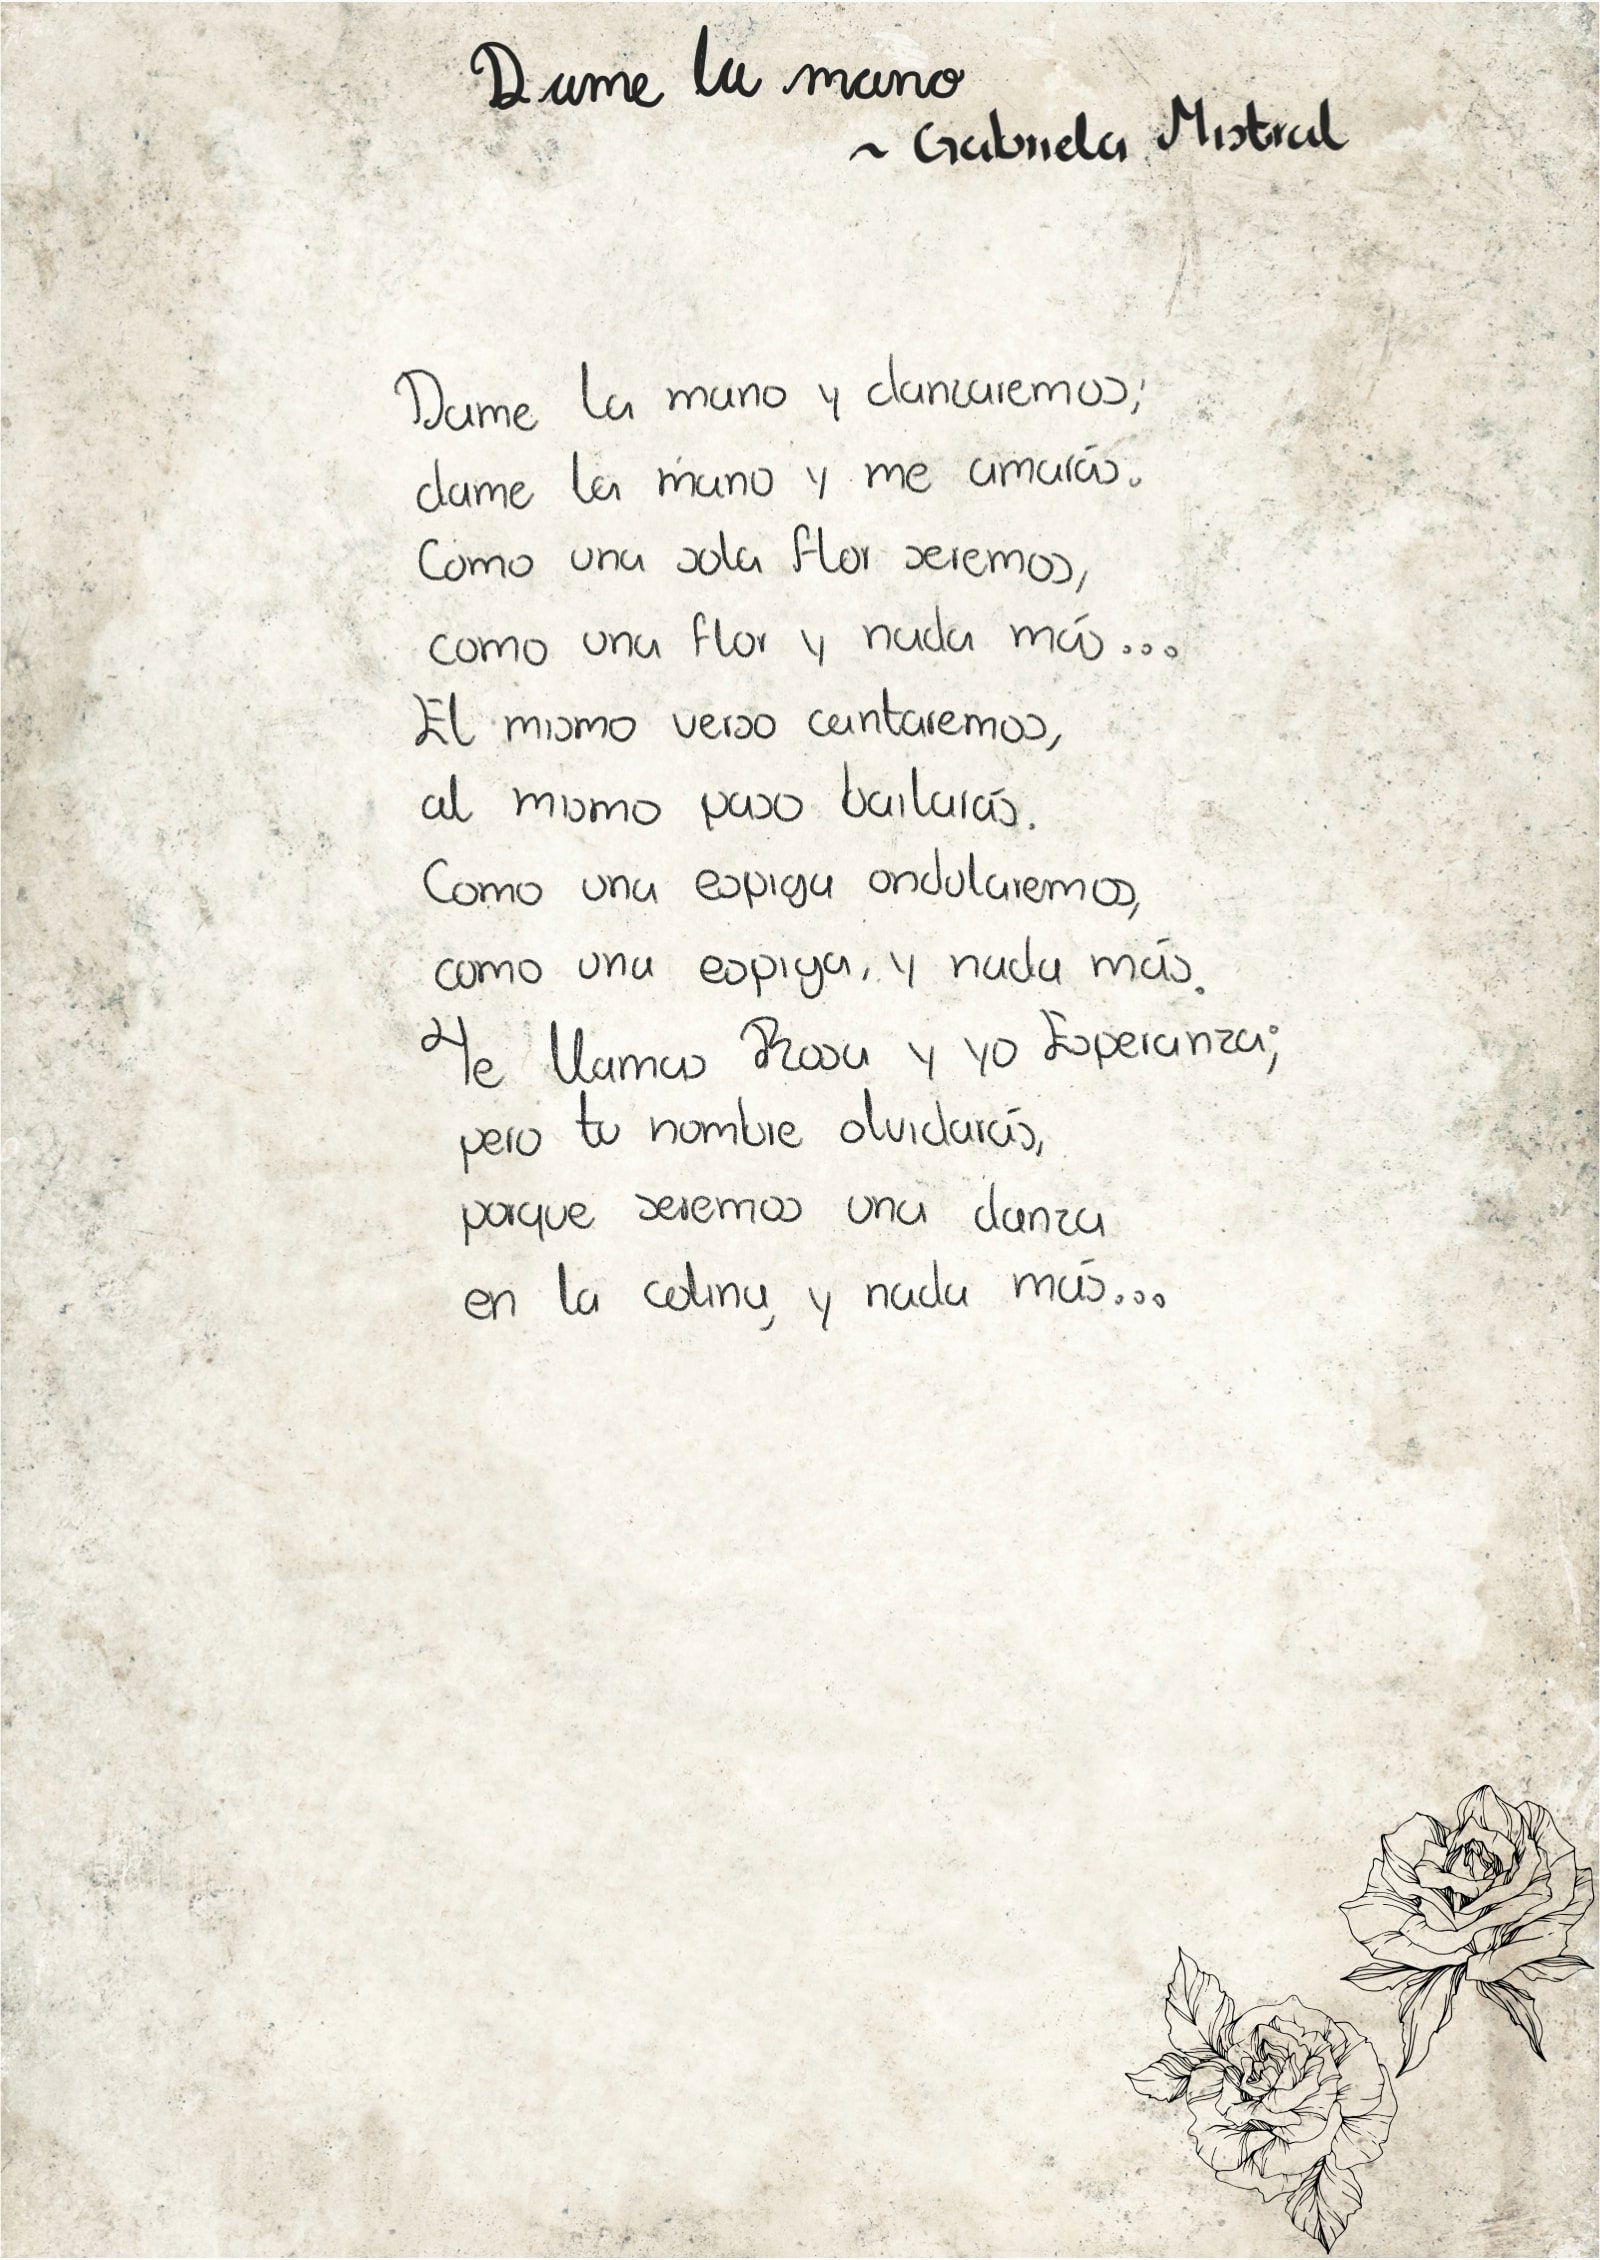 Dame la mano
~ Gabriela Mistral
Dame la mano y danzaremos;
dame la mano y me amarás.
Como una sola flor seremos,
como una flor y nada más...
El mismo verso cantaremos,
al mismo paso bailarás.
Como una espiga ondularemos,
como una espiga, y nada más.
Te llamas Rosa y yo Esperanza;
pero tu nombre olvidarás,
porque seremos una danza
en la colina, y nada más...